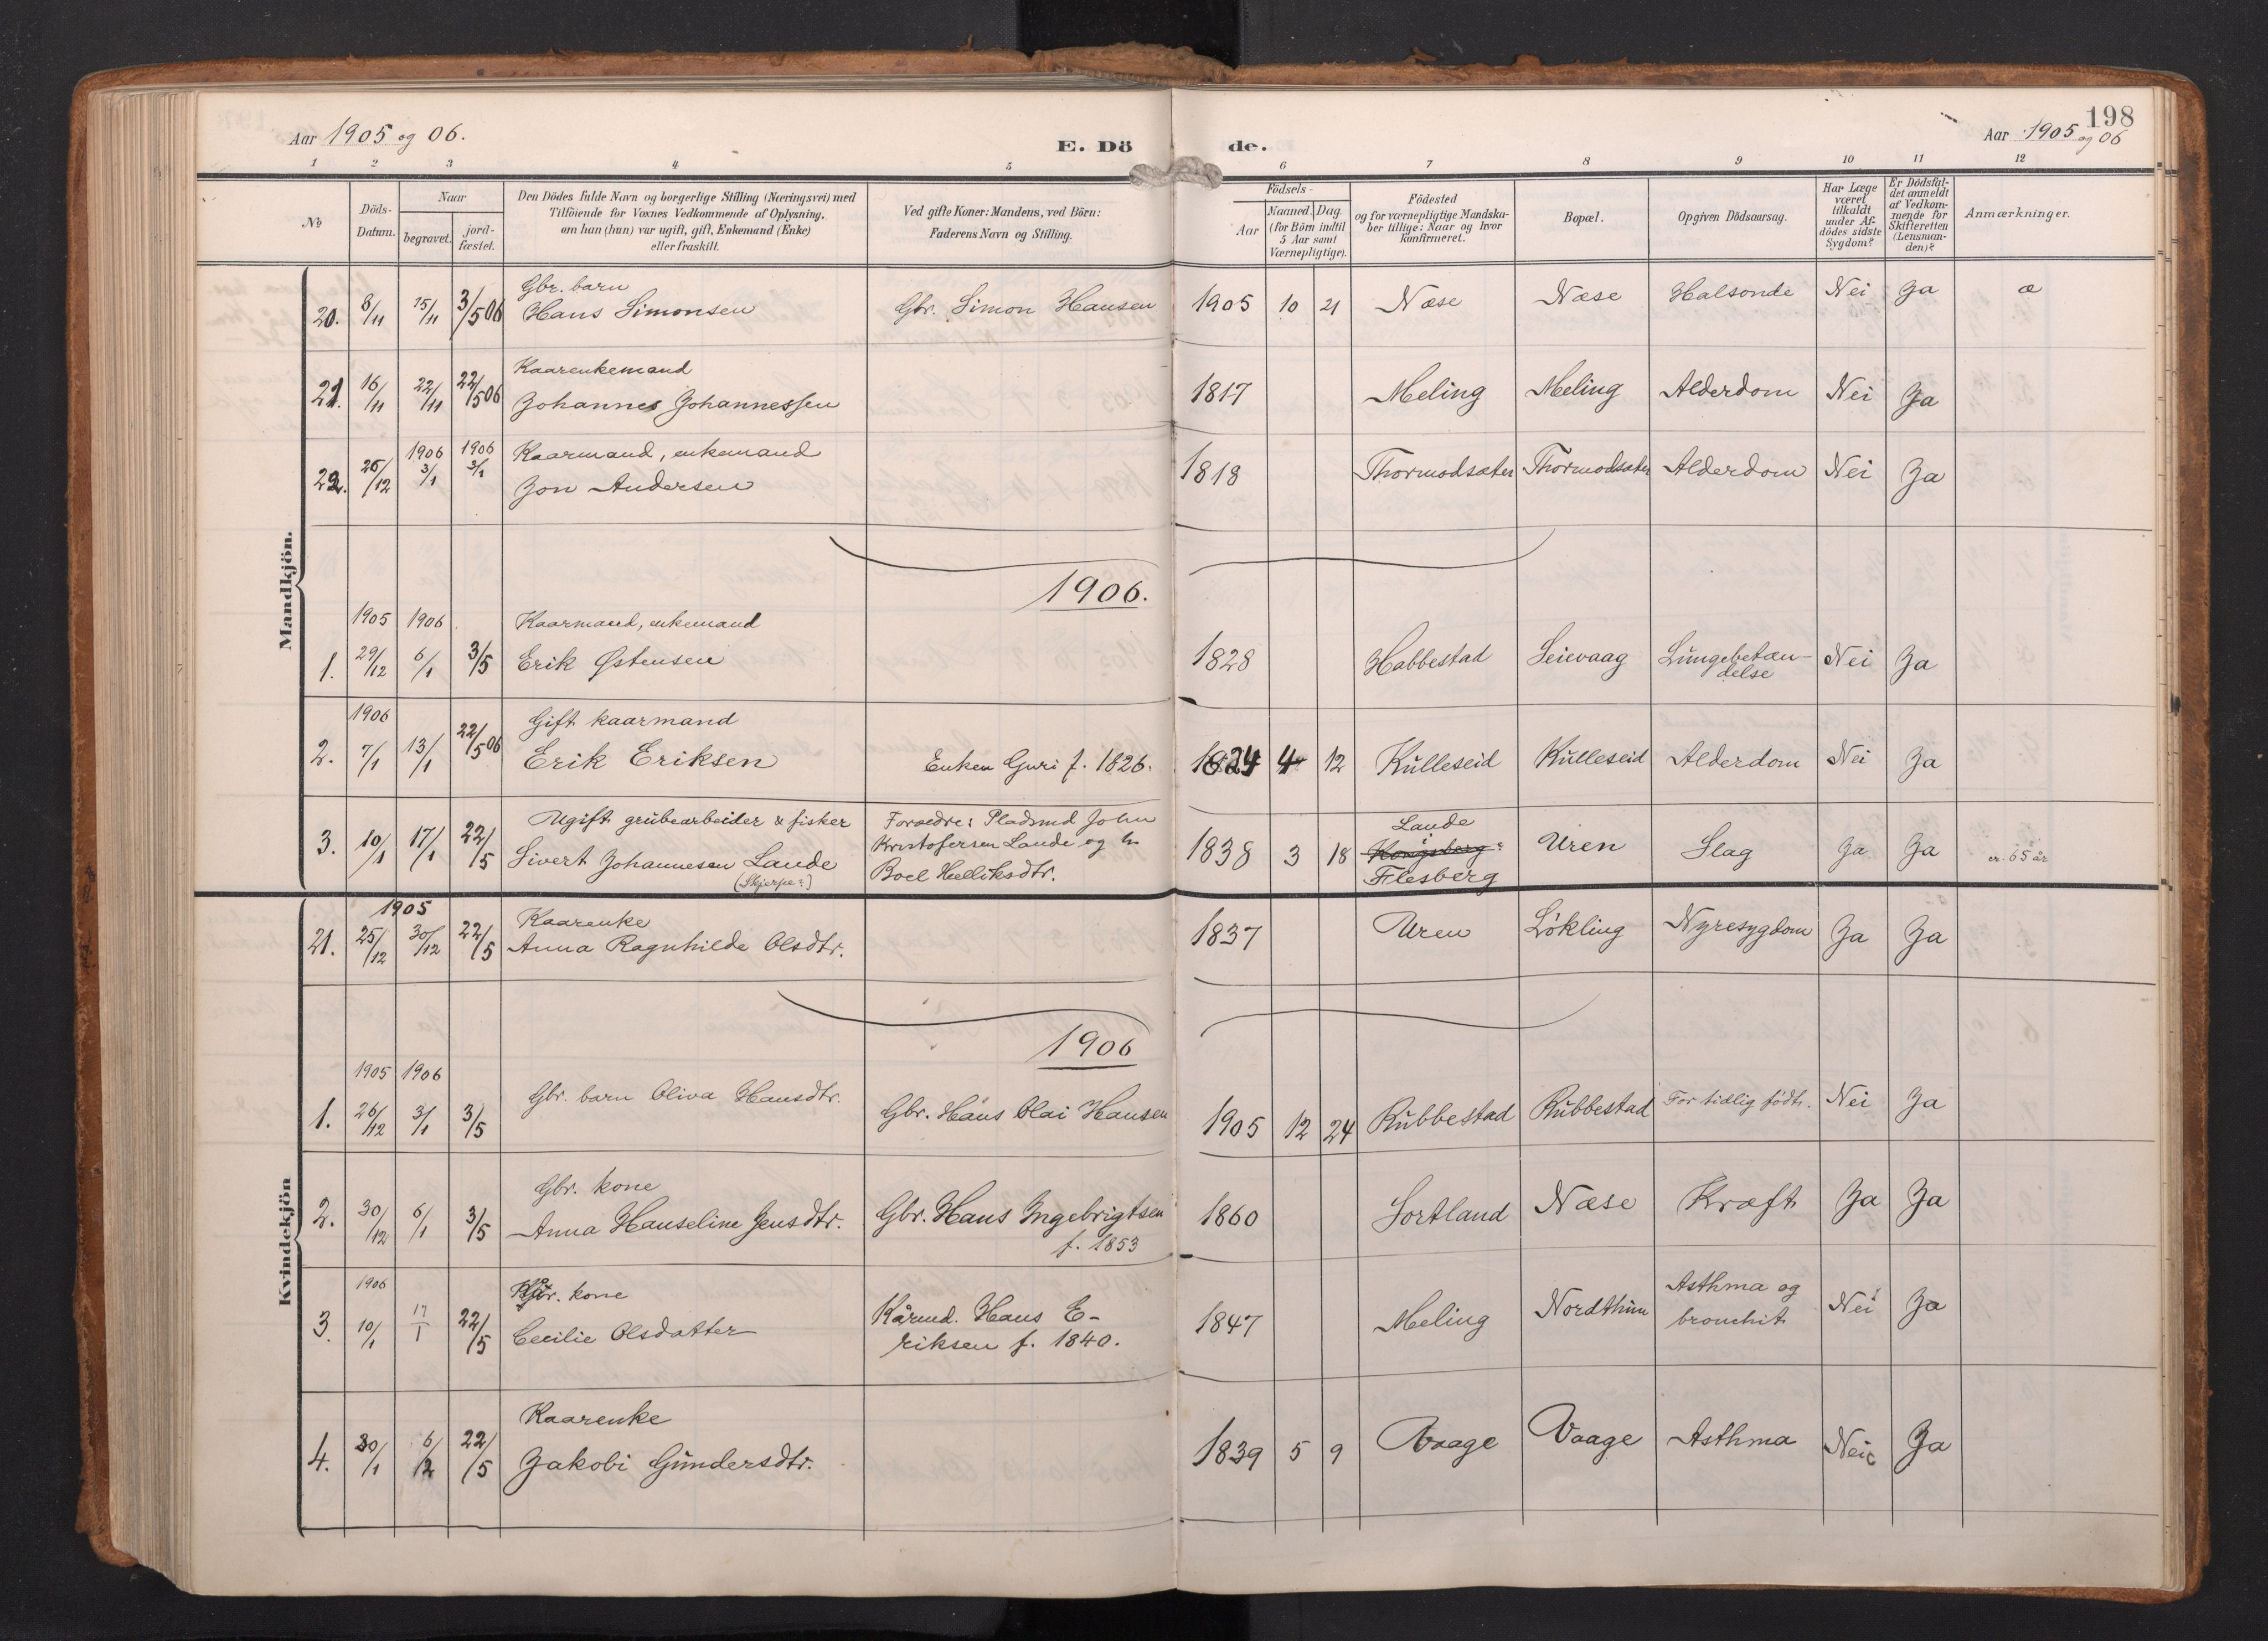 198
Aar 1905 og 06.
E. Dö de.
Aar 1905 og 06
1 2 3 4 5 6 7 8 9 10 11 12
No
Döds-Datum.
Naar
begravet.
jord-fæstet.
Den Dödes fulde Navn og borgerlige Stilling (Næringsvei) med
Tilföiende for Voxnes Vedkommende af Oplysning,
om han (hun) var ugift, gift, Enkemand (Enke)
eller fraskilt.
Ved gifte Koner: Mandens, ved Börn:
Faderens Navn og Stilling.
Födsels-
Aar
Maaned. Dag.
(for Börn indtil
5 Aar samt
Værnepligtige).
Födested
og for værnepligtige Mandska-
ber tillige: Naar og hvor
konfirmeret.
Bopæl.
Opgiven Dödsaarsag.
Har Læge
været
tilkaldt
under Af-
dödes sidste
Sygdom?
Er Dödsfal-
det anmeldt
af Vedkom-
mende for
Skifteretten
(Lensman-
den)?
Anmærkninger.
Mandkjön.
Gbr. barn
20. 8/11 15/11 3/5 06 Hans Simonsen Gbr. Simon Hansen 1905 10 21 Næse Næse Halsonde Nei Ja æ
Kaarenkemand
21. 16/11 22/11 22/5 06 Johannes Johannessen 1817 Meling Meling Alderdom Nei Ja
1906 1906 Kaarmand, enkemand
22. 26/12 3/1 3/1 Jon Andersen 1818 Thormodsæter Thormodsæter Alderdom Nei Ja
1906.
1905 1906 Kaarmand, enkemand
1. 29/12 6/1 3/5 Erik Østensen 1828 Habbestad Seievaag Lungebetæn-
delse Nei Ja
1906 Gift kaarmand
2. 7/1 13/1 22/5 06 Erik Eriksen Enken Guri f. 1826. 1824 4 12 Kulleseid Kulleseid Alderdom Nei Ja
Ugift grubearbeider & fisker Forædre: Pladsmd John Laude
3. 10/1 17/1 22/5 Sivert Johannesen Laude Kristofersen Laude og h. 1838 3 18 Kongsberg? Uren Slag Ja Ja er. 65 år
(Skjerpe?) Boel Helliksdtr. Flesberg
Kvindekjön
1905 Kaarenke
21. 25/12 30/12 22/5 Anna Ragnhilde Olsdtr. 1837 Uren Løkling Nyresygdom Ja Ja
1906
1905 1906
1. 26/12 3/1 3/5 Gbr. barn Oliva Hansdtr. Gbr. Hans Olai Hansen 1905 12 24 Rubbestad Rubbestad For tidlig født. Nei Ja
Gbr. kone
2. 30/12 6/1 3/5 Anna Hanseline Jensdtr. Gbr. Hans Ingebrigtsen 1860 Sortland Næse Kræft Ja Ja
f. 1853
1906 kone Asthma og
3. 10/1 17/1 22/5 Cecilie Olsdatter Kårmd. Hans E- 1847 Meling Nordthun bronchit Nei Ja
riksen f. 1840.
Kaarenke
4. 30/1 6/2 22/5 Jakobi Gundersdtr. 1839 5 9 Vaage Vaage Asthma Nei Ja